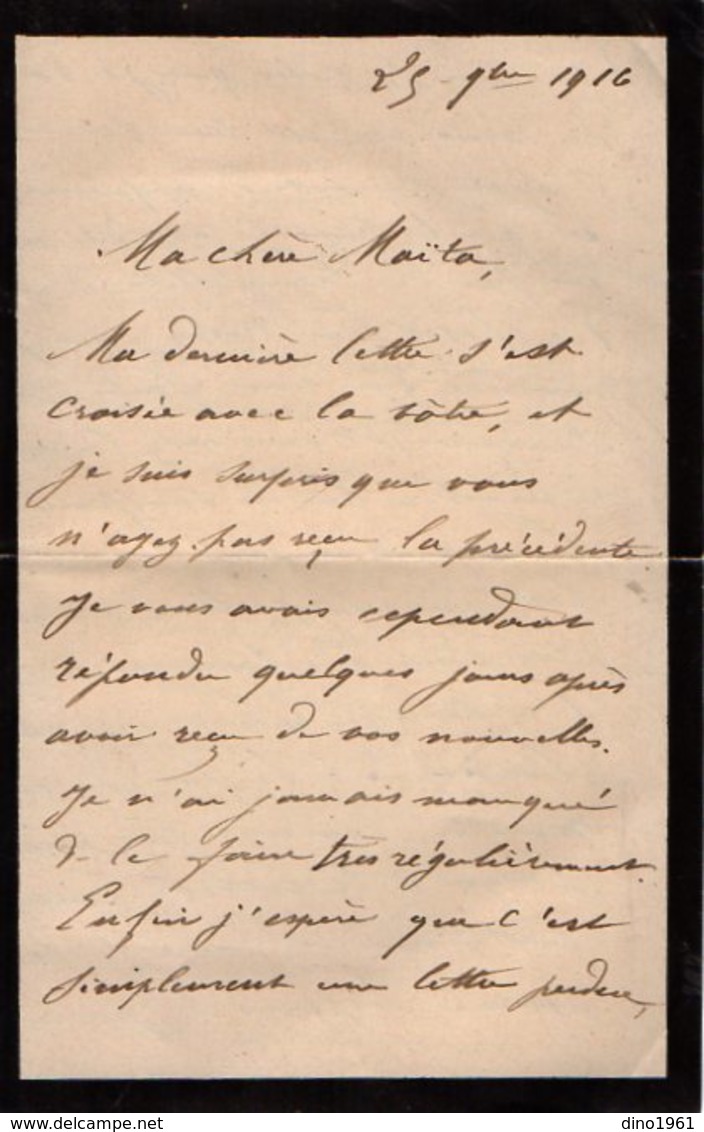 25 9bre 1916
Ma chère Maïta,
Ma dernière lettre s'est
croisée avec la vôtre, et
je suis surpris que vous
n'ayez pas reçu la précédente.
Je vous avais cependant
répondu quelques jours après
avoir reçu de vos nouvelles.
Je n'ai jamais manqué
de le faire très régulièrement.
Enfin j'espère que c'est
simplement une lettre perdue,
dino1961